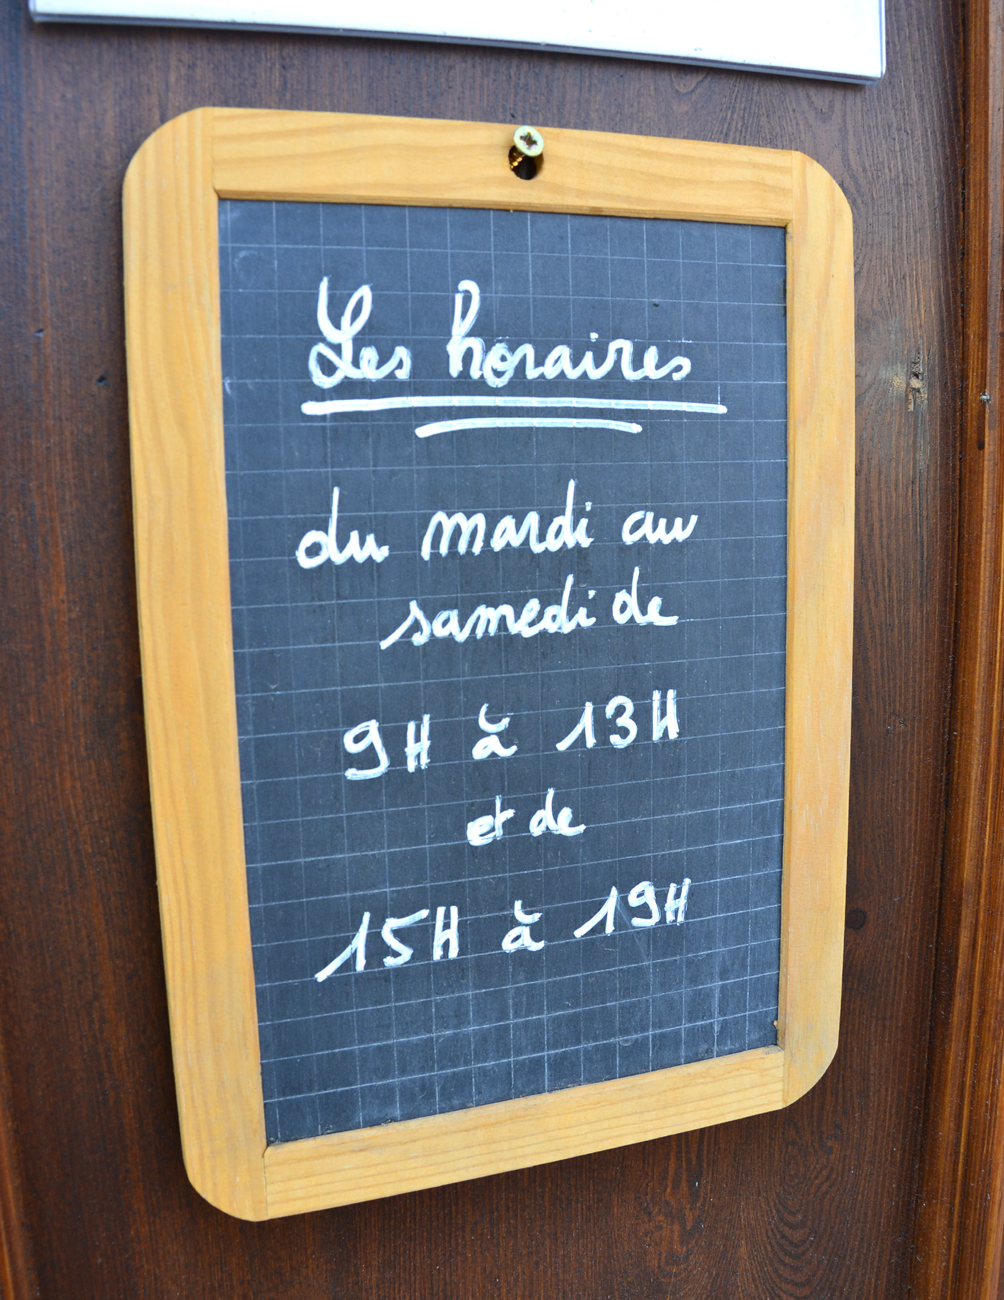 Les horaires
du mardi au
samedi de
9H à 13H
et de
15H à 19H